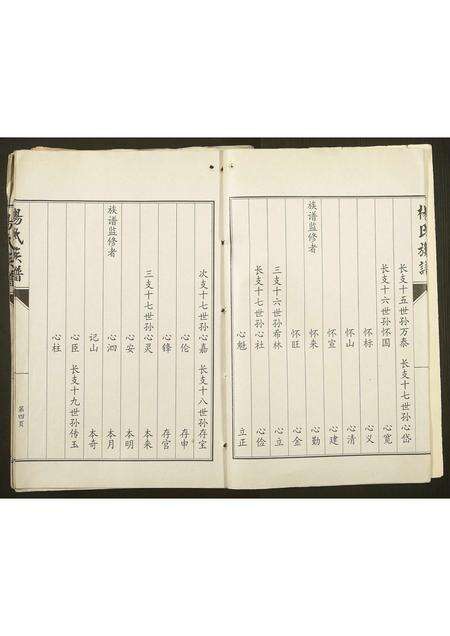 杨氏族谱
长支十五世孙万泰 长支十七世孙心岱
长支十六世孙怀国 心宽
怀标 心义
怀山 心清
怀宣 心建
族谱监修者 怀来 心勤
怀旺 心金
三支十六世孙希林 心立
长支十七世孙心社 心俭
心魁 立正
次支十七世孙心嘉 长支十八世孙存宝
心伦 存申
心锋 存官
三支十七世孙心灵 本来
心安 本明
族谱监修者 心泗 本月
记山 本奇
心臣 长支十九世孙传玉
心柱
杨氏族谱
第四页